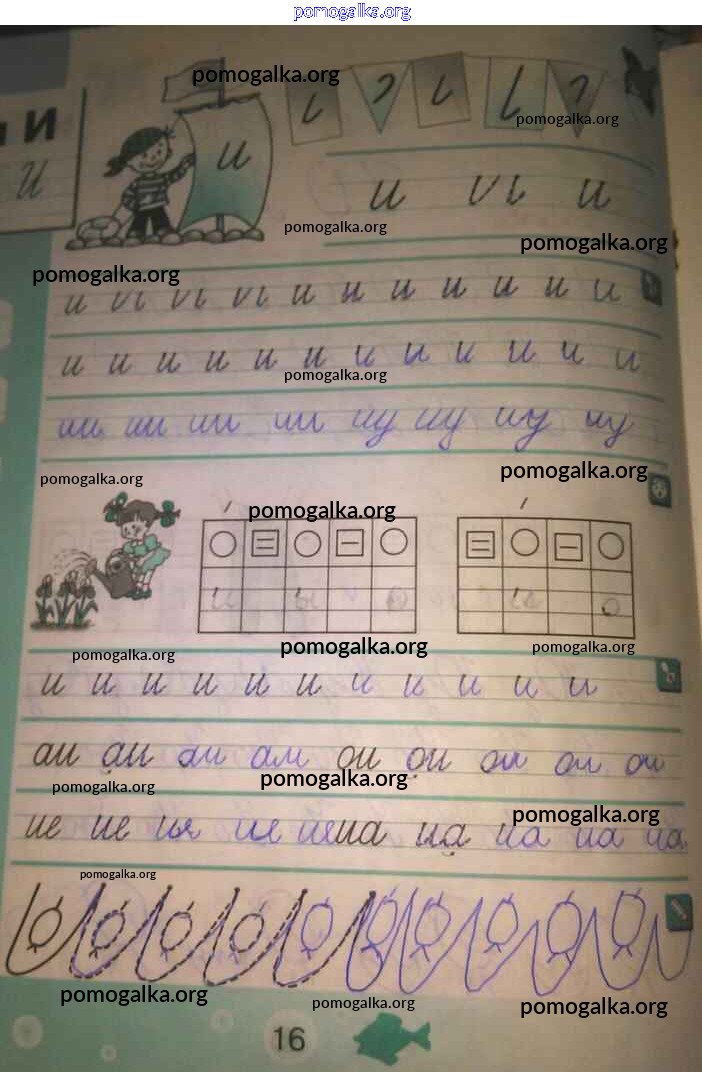 pomogalka.org
pomogalka.org
и И
и
pomogalka.org
И
и и и
pomogalka.org
pomogalka.org
pomogalka.org
и и и и и и и и и и и
и и и и и и и и и и и и
pomogalka.org
ии ии ии ии иу иу иу иу
pomogalka.org
pomogalka.org
pomogalka.org
и ы о и о
pomogalka.org
pomogalka.org
pomogalka.org
и и и и и и и и и и и
аи аи аи аи ои ои ои ои ои
pomogalka.org
pomogalka.org
pomogalka.org
ие ие ие ие ие иа иа иа иа иа
pomogalka.org
pomogalka.org
pomogalka.org
pomogalka.org
16